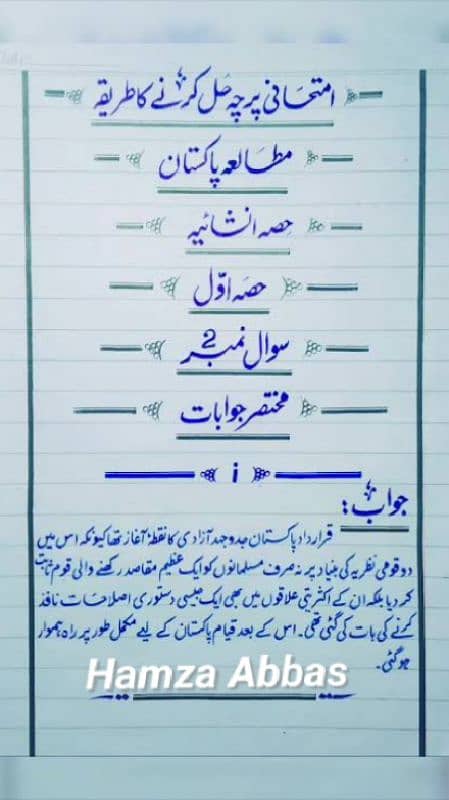 امتحانی پرچہ حل کرنے کا طریقہ
مطالعہ پاکستان
حصہ انشائیہ
حصہ اوّل
سوال نمبر 2
مختصر جوابات
i
جواب:
قرارداد پاکستان جدوجہد آزادی کا نقطۂ آغاز تھا کیونکہ اس میں
دو قومی نظریہ کی بنیاد پر نہ صرف مسلمانوں کو ایک عظیم مقاصد رکھنے والی قوم ثابت
کر دیا بلکہ ان کے اکثریتی علاقوں میں بھی ایک جیسی دستوری اصلاحات نافذ
کرنے کی بات کی گئی تھی۔ اس کے بعد قیام پاکستان کے لیے مکمل طور پر راہ ہموار
ہو گئی۔
Hamza Abbas